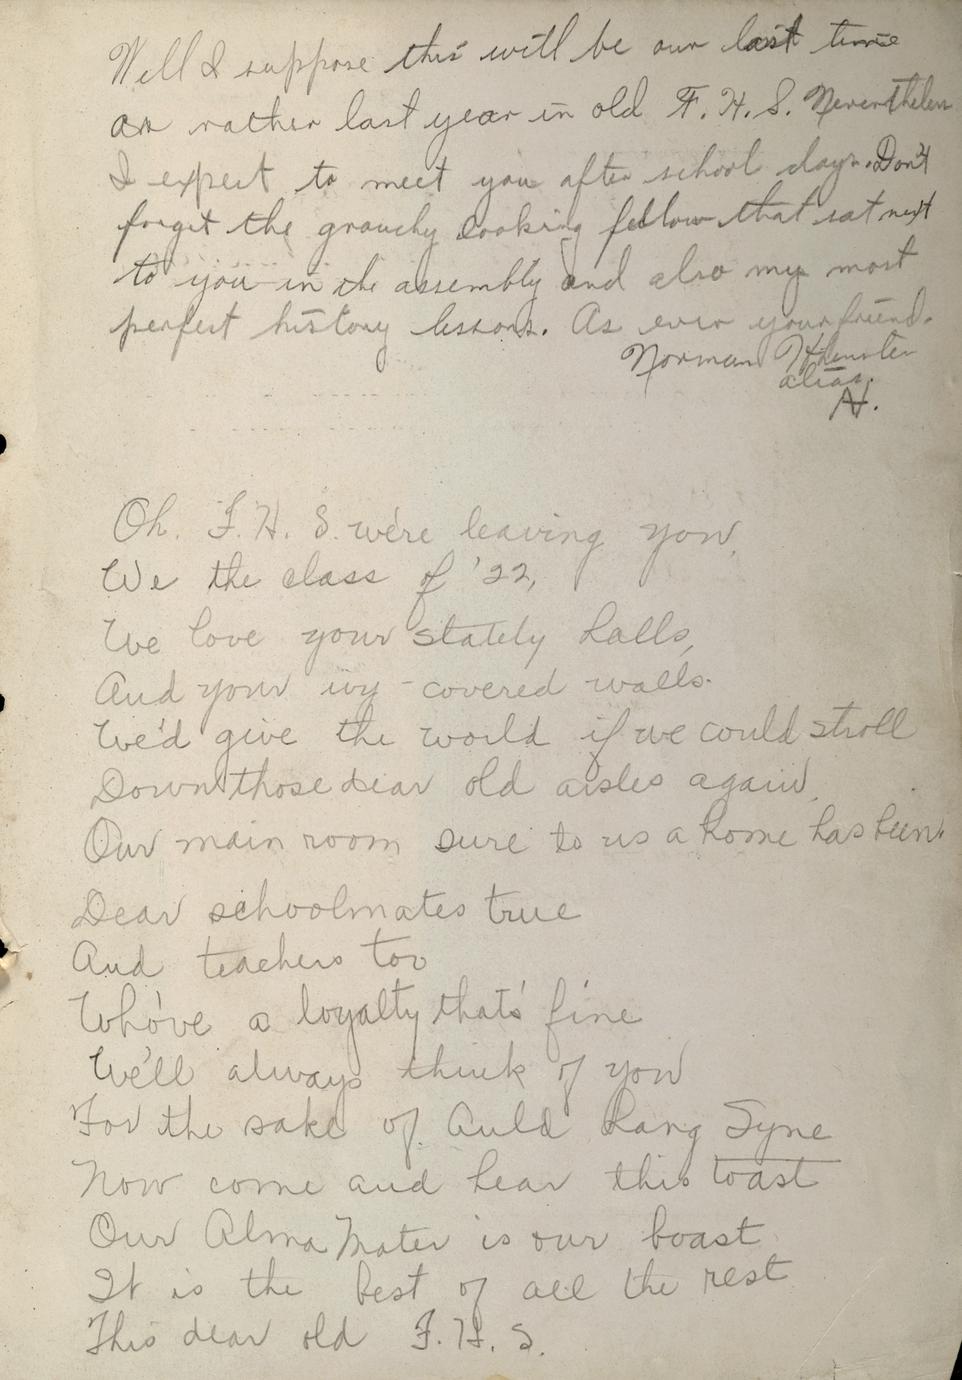 Well I suppose this will be our last time
or rather last year in old F. H. S. Nevertheless
I expect to meet you after school days. Don't
forget the grouchy looking fellow that sat next
to you in the assembly and also my most
perfect history lessons. As ever your friend.
Norman
alias.
Oh. F. H. S. we're leaving you,
We the class of '22,
We love your stately halls,
And your ivy-covered walls.
We'd give the world if we could stroll
Down those dear old aisles again,
Our main room sure to us a home has been.
Dear schoolmates true
And teachers too
Who've a loyalty that's fine
We'll always think of you
For the sake of Auld Lang Syne
Now come and hear this toast
Our Alma Mater is our boast
It is the best of all the rest
This dear old F. H. S.